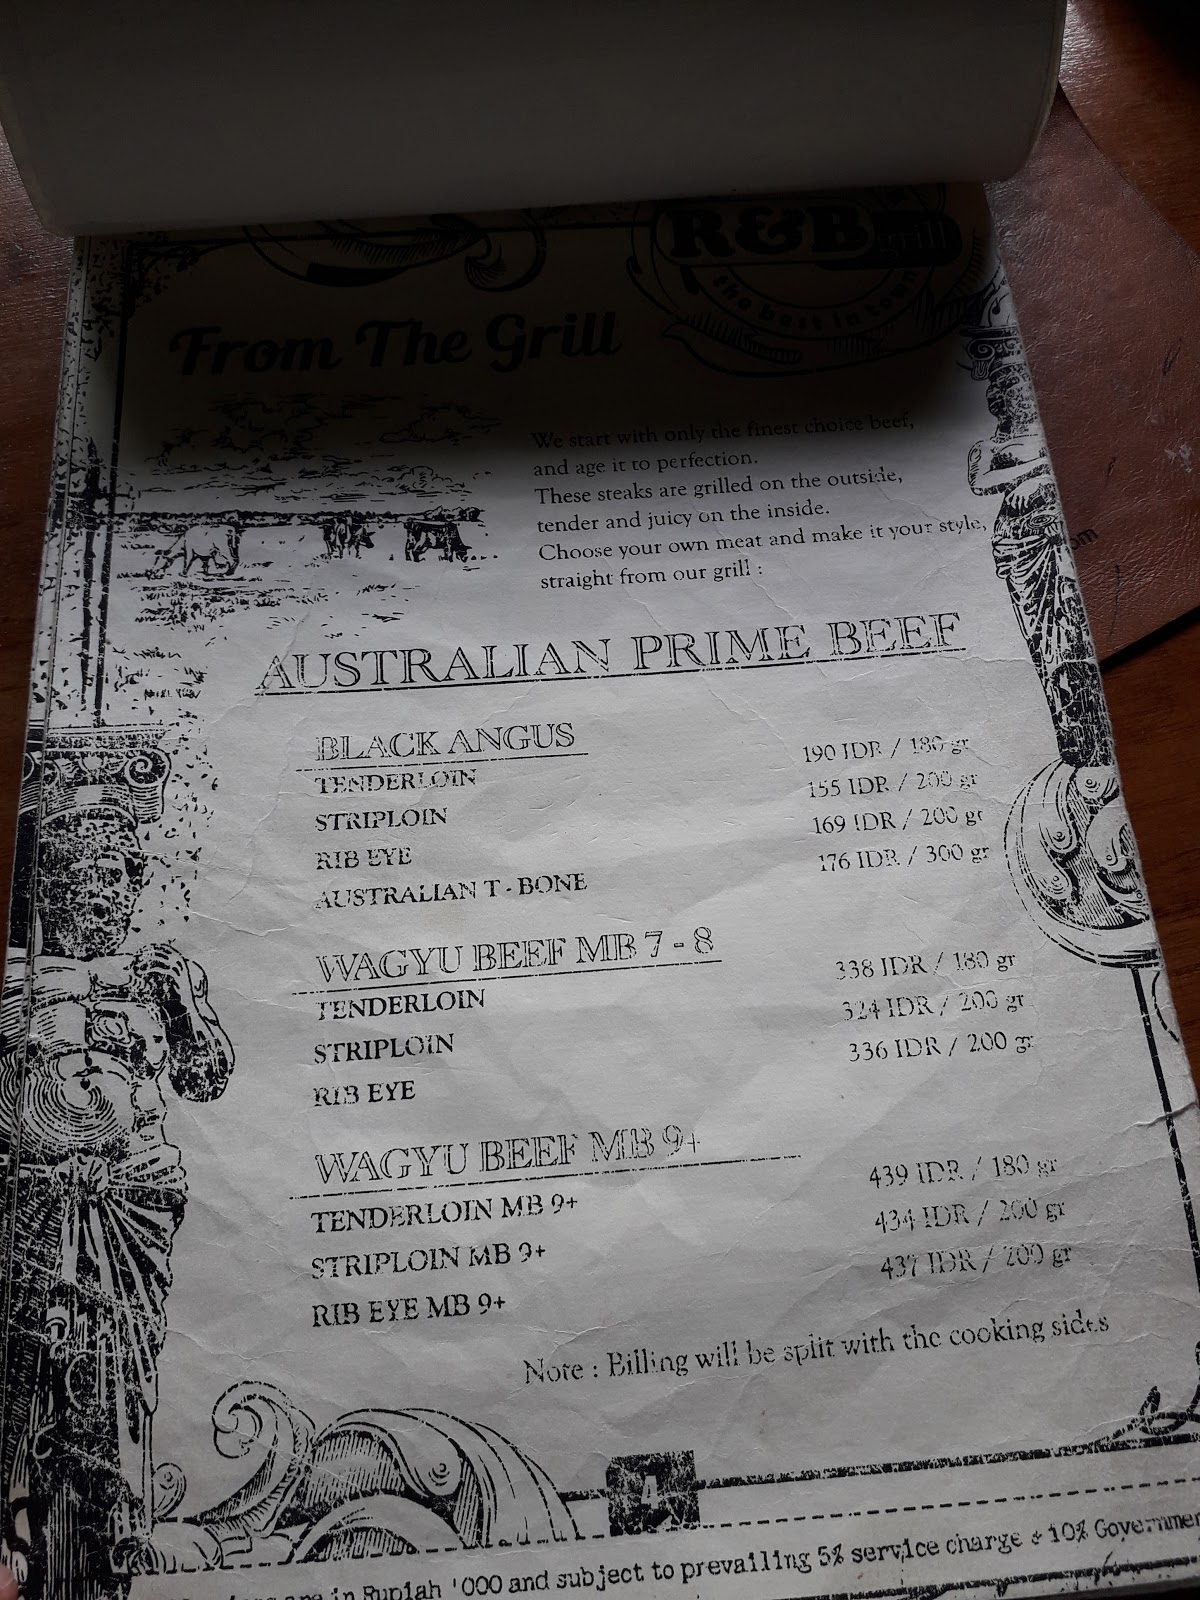 R&B grill
the best in town
From The Grill
We start with only the finest choice beef,
and age it to perfection.
These steaks are grilled on the outside,
tender and juicy on the inside.
Choose your own meat and make it your style,
straight from our grill :
AUSTRALIAN PRIME BEEF
BLACK ANGUS
TENDERLOIN 190 IDR / 180 gr
STRIPLOIN 155 IDR / 200 gr
RIB EYE 169 IDR / 200 gr
AUSTRALIAN T - BONE 176 IDR / 300 gr
WAGYU BEEF MB 7 - 8
TENDERLOIN 338 IDR / 180 gr
STRIPLOIN 324 IDR / 200 gr
RIB EYE 336 IDR / 200 gr
WAGYU BEEF MB 9+
TENDERLOIN MB 9+ 439 IDR / 180 gr
STRIPLOIN MB 9+ 434 IDR / 200 gr
RIB EYE MB 9+ 437 IDR / 200 gr
Note : Billing will be split with the cooking sides
4
are in Rupiah '000 and subject to prevailing 5% service charge & 10% Governmen